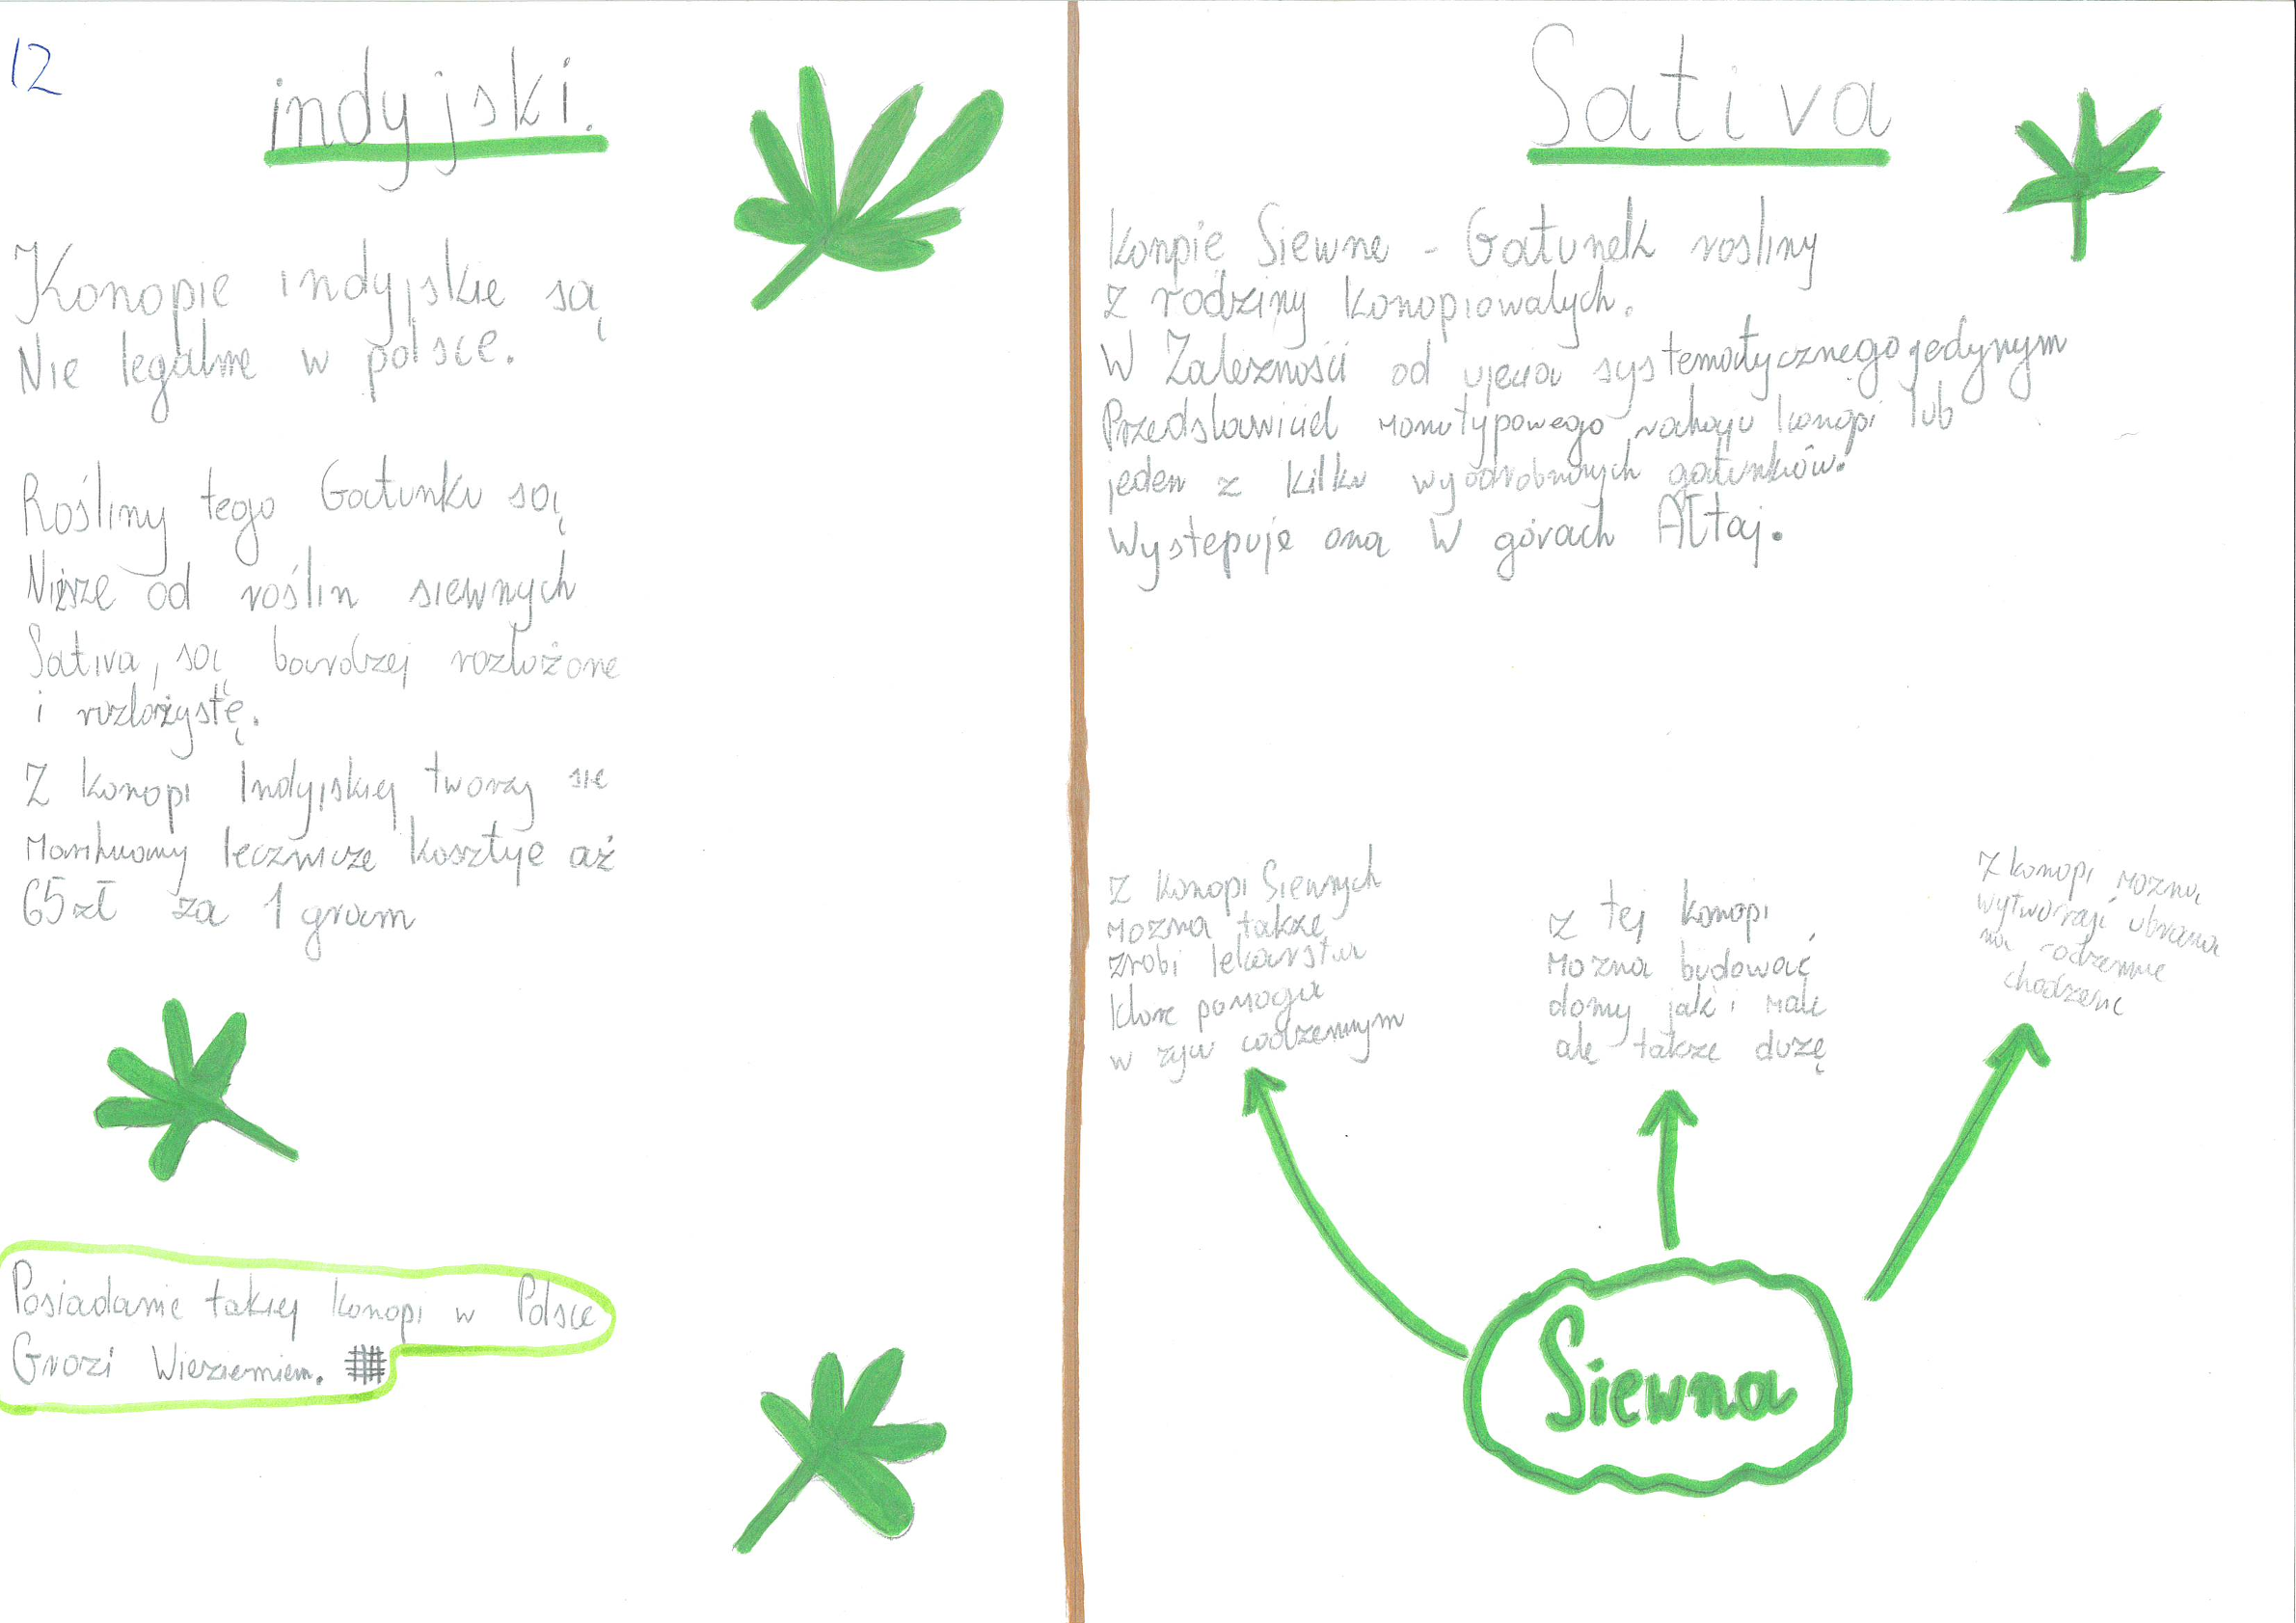 12
indyjski.
Konopie indyjskie są
Nie legalne w polsce.
Rośliny tego Gatunku są
Niższe od roślin siewnych
Sativa, są bardzej rozłożone
i rozłożystę.
Z konopi Indyjskiej tworzy sie
Marihuany lecznicze kosztuje aż
65zł za 1 gram
Posiadanie takiej konopi w Polsce
Grozi Wieziemiem.
Sativa
konpie Siewne - Gatunek rosliny
z rodziny konopiowatych.
W Zależności od ujecia systematycznego jedynym
Przedstawiciel monotypowego rodzaju konopi lub
jeden z kilku wyodrobnionych gatunków.
Wystepuje ona W górach Ałtaj.
Z konopi Siewnych
mozna takze
zrobi lekarstwa
ktore pomoga
w zyciu codzennym
z tej konopi
mozna budować
domy jak i małe
ale takze duzę
Z konopi mozna
wytworzają ubrana
na codzienne
chodzenie
Siewna